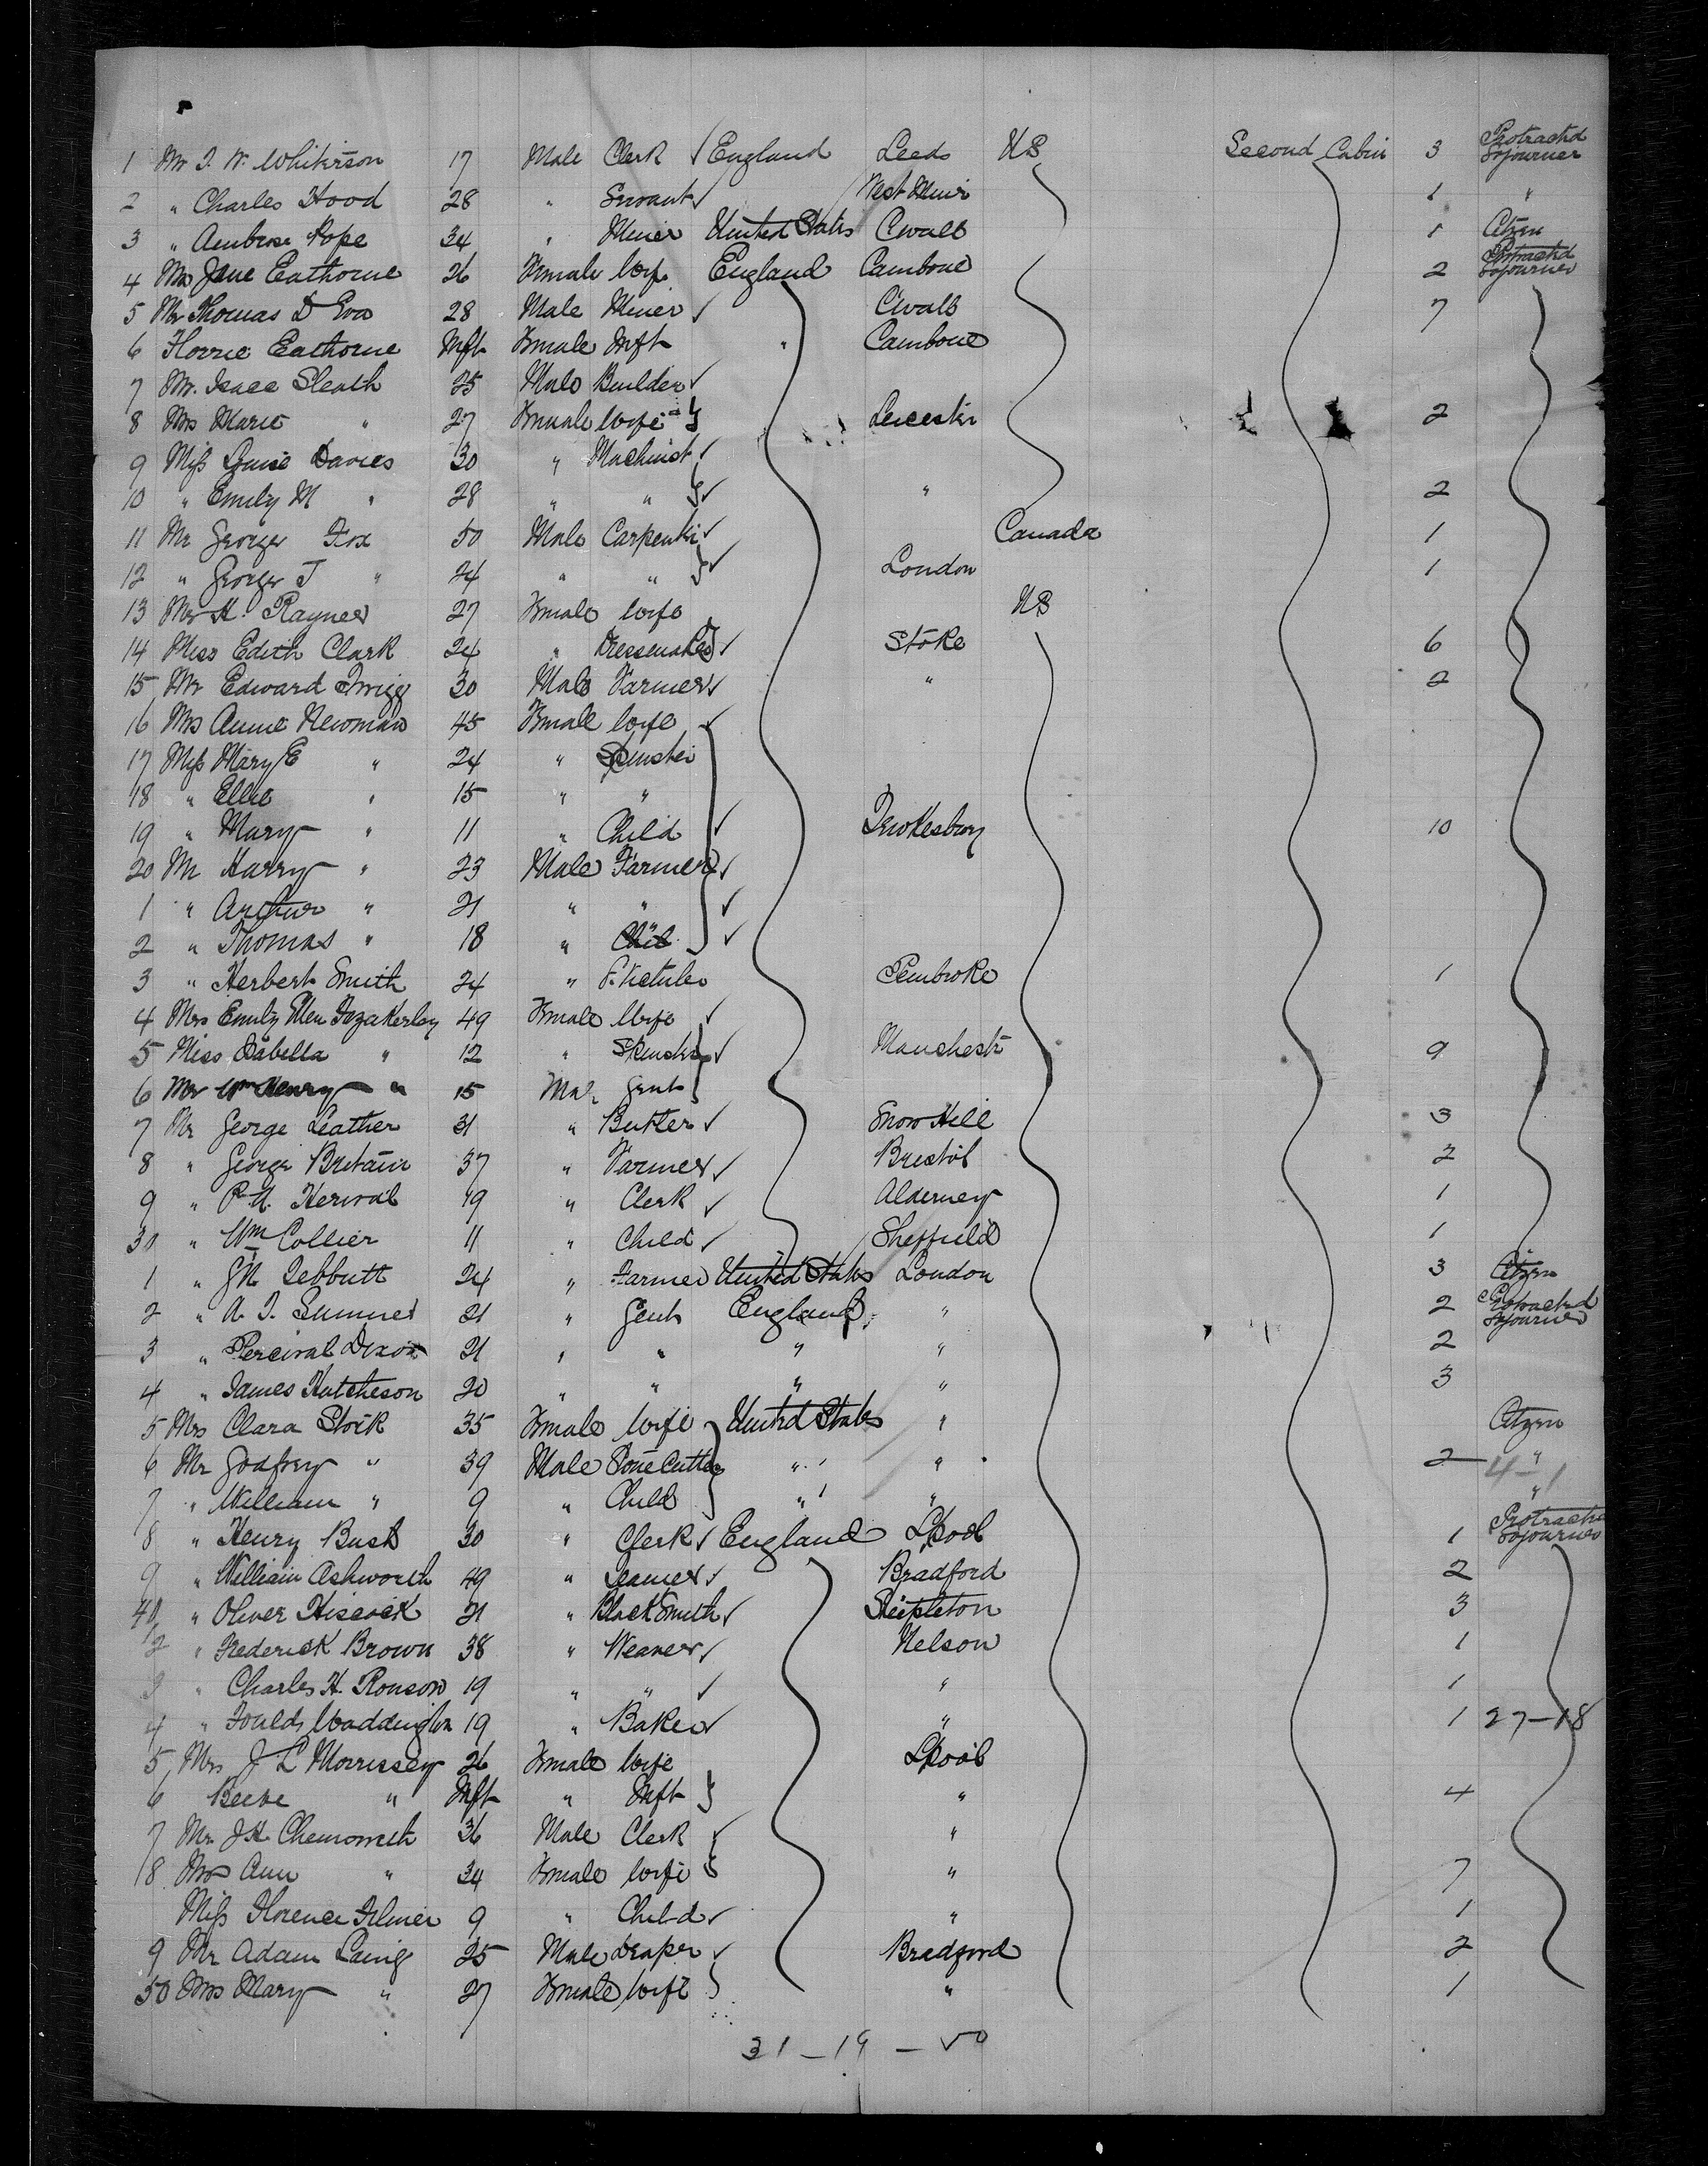 1 Mr J. W. Whitirson 17 Male Clerk England Leeds US Second Cabin 3 Protractd Sojourner
2 " Charles Hood 28 " Servant West Minr 1 "
3 " Ambrose Pope 34 " Miner United States Cwall 1 Citzen
4 Mrs Jane Eathorne 26 Female Wife England Camborne 2 Protractd Sojourner
5 Mr Thomas D Eva 28 Male Miner Cwall 7
6 Florrie Eathorne Inft Female Inft " Camborne
7 Mr. Isaac Sleath 25 Male Builder
8 Mrs Marie " 27 Female Wife Leicester 2
9 Miss Louise Davies 30 " Machinist
10 " Emily M " 28 " " " 2
11 Mr George Fox 50 Male Carpenter Canada 1
12 " George J " 24 " " London 1
13 Mrs H. Rayner 27 Female Wife US
14 Miss Edith Clark 24 " Dressmaker Stoke 6
15 Mr Edward Twigg 30 Male Farmer " 2
16 Mrs Annie Newman 45 Female Wife
17 Miss Mary E " 24 " Spinster
18 " Ellie " 15 " "
19 " Mary " 11 " Child Tewkesbury 10
20 Mr Harry " 23 Male Farmer
1 " Arthur " 21 " "
2 " Thomas " 18 "
3 " Herbert Smith 24 " Pembroke 1
4 Mrs Emily Ellen Fazakerley 49 Female Wife
5 Miss Isabella " 12 " Spinster Manchestr 9
6 Mr Wm Henry " 15 Male Gent
7 Mr George Leather 31 " Butler Snow Hill 3
8 " George Britain 37 " Farmer Bristol 2
9 " P. A. Herival 19 " Clerk Alderney 1
30 " Wm Collier 11 " Child Sheffield 1
1 " Tebbutt 24 " Farmer United States London 3 Citzen
2 " A. J. Sumner 21 " Gent England " 2 Protractd Sojourner
3 " Percival Dixon 21 " " " " 2
4 " James Hutcheson 20 " " " " 3
5 Mrs Clara Stock 35 Female Wife United States " Citzen
6 Mr Godfrey " 39 Male Stone Cutter " " 2 "
4-1
7 " William " 9 " Child " " "
8 " Henry Bush 30 " Clerk England Lpool 1 Protractd Sojourner
9 " William Ashworth 49 " Bradford 2
40 " Oliver Hiscock 21 " BlackSmith 3
1/2 " Frederick Brown 38 " Weaver Nelson 1
3 " Charles H. Ronson 19 " " " 1
4 " Foulds Waddington 19 " Baker " 1 27-18
5 Mrs J L Morrissey 26 Female Wife Lpool
6 " Inft " Inft " 4
7 Mr J H. Chenoweth 36 Male Clerk "
8 Mrs Ann " 34 Female Wife " 7
Miss Florence Filmer 9 " Child " 1
9 Mr Adam Laing 25 Male Draper Bradford 2
50 Mrs Mary " 27 Female Wife " 1
31-19-50